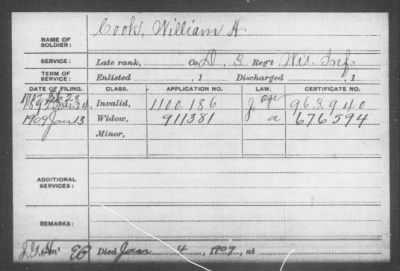 NAME OF SOLDIER: Cook, William H.
SERVICE: Late rank, Co. D, 3 Reg't Wis. Inf.
TERM OF SERVICE: Enlisted , 1 Discharged , 1
DATE OF FILING. CLASS. APPLICATION NO. LAW. CERTIFICATE NO.
1892 Invalid, 1100.186 963.940
1909 Jan 13 Widow, 911381 a 676594
Minor,
ADDITIONAL SERVICES:
REMARKS:
Died Jan 4, 1909, at